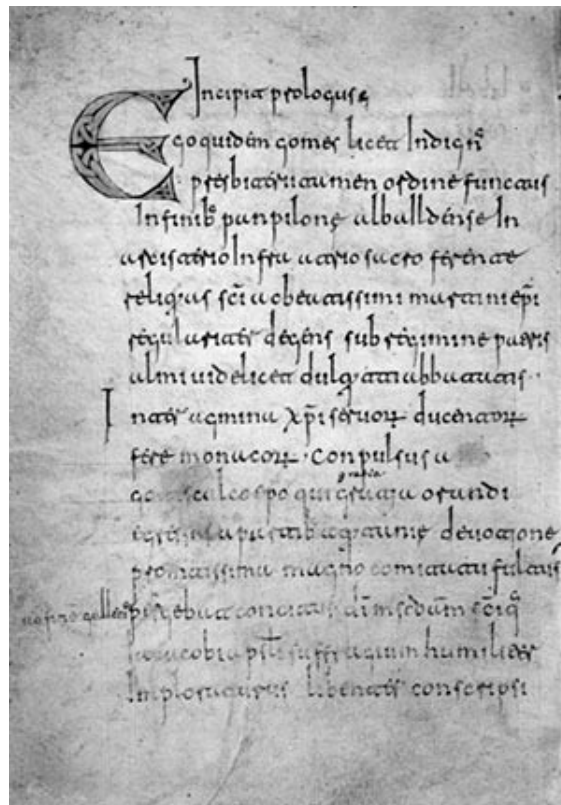 Incipit prologus
Ego quidem gomes licet Indign̄s
presbiterii tamen ordine functus
Infinib; panpilone alballdense In
arcisterio Infra atrio sacro ferente
reliquias sc̄i ac beatissimi martini ep̄i
regulariter degens sub regimine patris
almi uidelicet dulquitti abbatis.
Inter agmina xp̄i seruorum ducentorum
fere monacorum. Conpulsus a
gotiscalco ep̄o qui gratia orandi
partib; aquitanie deuotione
promtissima magno comitatu fultus
pergebat concitus dī m̄sc̄dm sc̄iq;
iacobi apsl̄i suffragium humiliter
Imploraturus libenter conscripsi